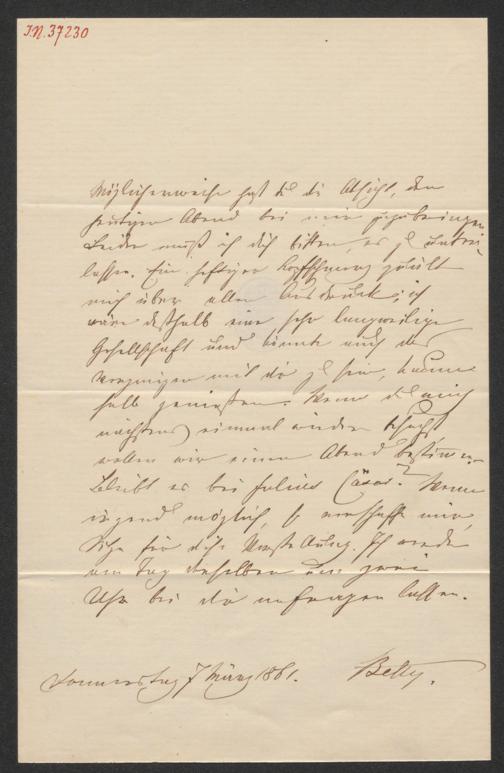 I.N. 37230
Möglicherweise hast du die Absicht, den
heutigen Abend bei mir zuzubringen.
Leider muß ich dich bitten, es zu unter-
lassen. Ein heftiger Kopfschmerz quält
mich über allen Ausdruck; ich
wäre deßhalb eine sehr langweilige
Gesellschaft und könnte auch das
Vergnügen mit dir zu sein, kaum
halb genießen. Wenn du mich
nächstens einmal wieder besuchst
wollen wir einen Abend bestimmen.
Bleibt es bei Julius Cäsar? Wenn
irgend möglich, so verschaffe mir
Sitze für die
am Tag derselben um zwei
Uhr bei dir anfragen lassen.
Donnerstag 7 März 1861. Betty.